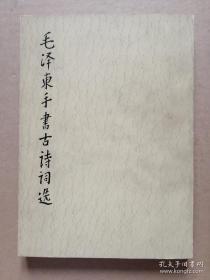 毛泽东手書古诗词选
孔夫子旧书网